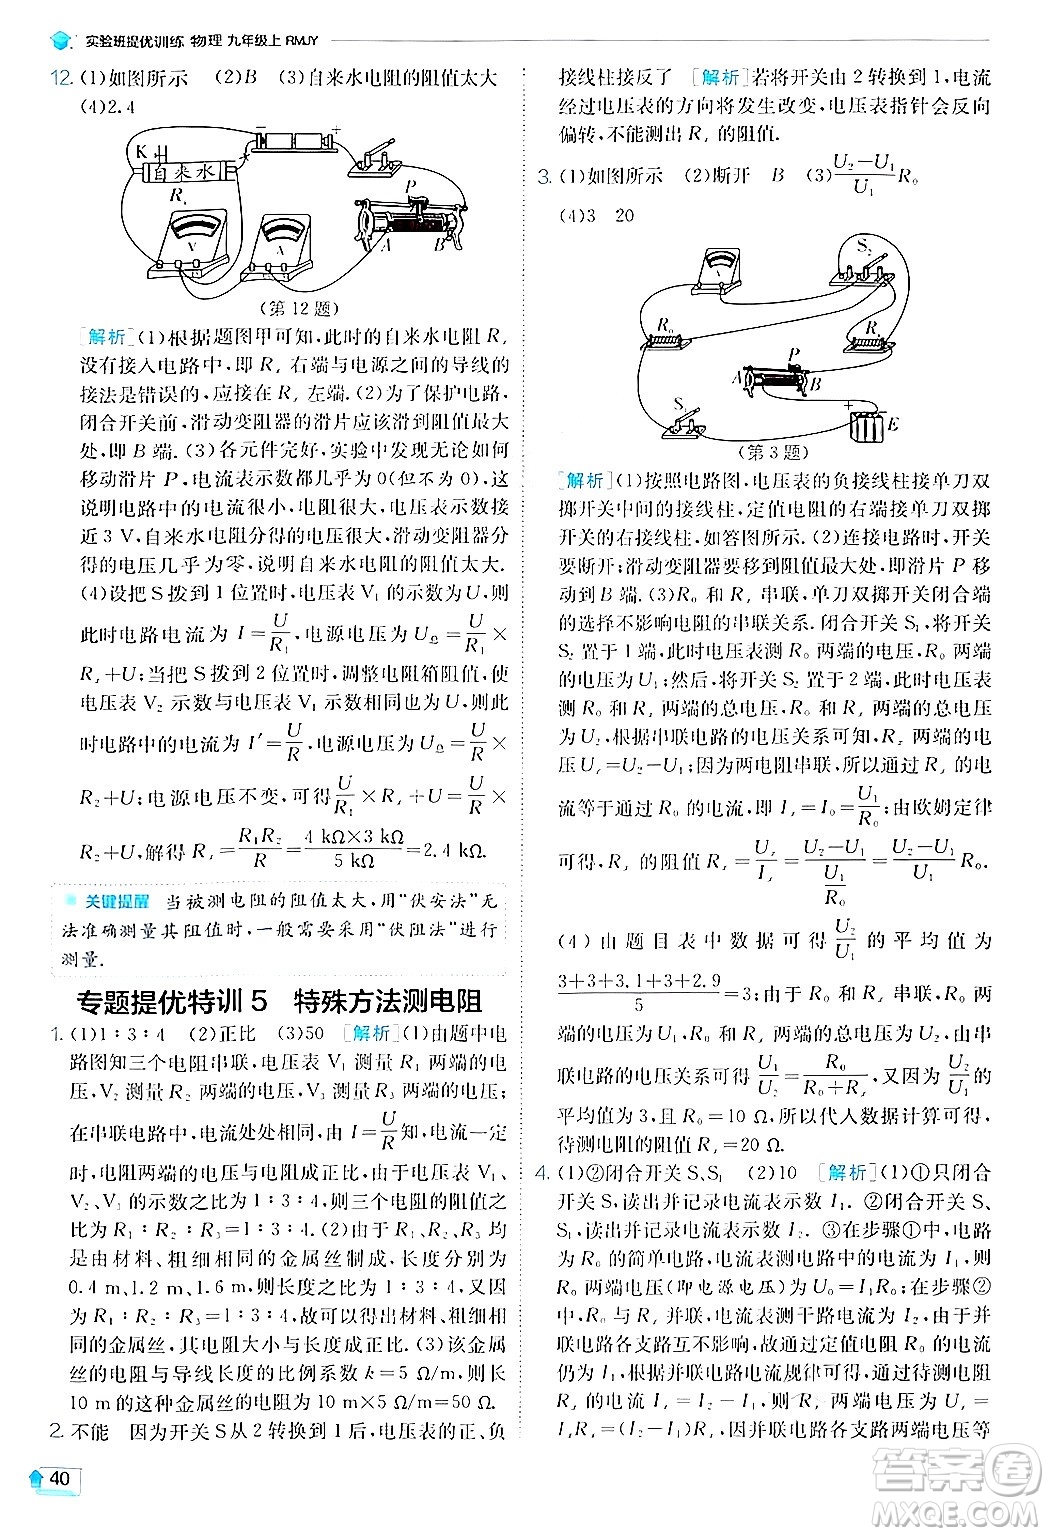 实验班提优训练 物理 九年级上 RMJY
12. (1)如图所示 (2)B (3)自来水电阻的阻值太大
(4)2.4
K
自来水
Rₓ
V
A
P
A B
− +
(第12题)
[解析](1)根据题图甲可知,此时的自来水电阻 Rₓ
没有接入电路中,即 Rₓ 右端与电源之间的导线的
接法是错误的,应接在 Rₓ 左端.(2)为了保护电路,
闭合开关前,滑动变阻器的滑片应该滑到阻值最大
处,即 B 端.(3)各元件完好,实验中发现无论如何
移动滑片 P,电流表示数都几乎为0(但不为0),这
说明电路中的电流很小、电阻很大,电压表示数接
近3 V,自来水分得的电压很大,滑动变阻器分
得的电压几乎为零,说明自来水电阻的阻值太大.
(4)设把S拨到1位置时,电压表 V₁ 的示数为U,则
此时电路电流为 I=U/R₁,电源电压为 U总=U/R₁×
Rₓ+U;当把S拨到2位置时,调整电阻箱阻值,使
电压表 V₂ 示数与电压表 V₁ 示数相同也为U,则此
时电路中的电流为 I′=U/R,电源电压为 U总=U/R×
R₂+U;电源电压不变,可得 U/R₁×Rₓ+U=U/R×
R₂+U,解得 Rₓ=R₁R₂/R=4 kΩ×3 kΩ/5 kΩ=2.4 kΩ.
关键提醒 当被测电阻的阻值太大,用“伏安法”无
法准确测量其阻值时,一般需要采用“伏阻法”进行
测量.
专题提优特训5 特殊方法测电阻
1. (1)1∶3∶4 (2)正比 (3)50 [解析](1)由题中电
路图知三个电阻串联,电压表 V₁ 测量 R₁ 两端的电
压,V₂ 测量 R₂ 两端的电压,V₃ 测量 R₃ 两端的电压,
在串联电路中,电流处处相等,由 I=U/R知,电流一定
时,电阻两端的电压与电阻成正比,由于电压表 V₁、
V₂、V₃ 的示数之比为1∶3∶4,则三个电阻的阻值之
比为 R₁∶R₂∶R₃=1∶3∶4.(2)由于 R₁、R₂、R₃ 均
是由材料、粗细相同的金属丝制成,长度分别为
0.4 m,1.2 m,1.6 m,则长度之比为1∶3∶4,又因
为 R₁∶R₂∶R₃=1∶3∶4,故可以得出材料、粗细相
同的金属丝,其电阻大小与长度成正比.(3)该金属
丝的电阻与导线长度的比例系数 k=5 Ω/m,则长
10 m的这种金属丝的电阻为10 m×5 Ω/m=50 Ω.
2. 不能 因为开关S从2转换到1后,电压表的正、负
40
接线柱接反了 [解析]若将开关由2转换到1,电流
经过电压表的方向将发生改变,电压表指针会反向
偏转,不能测出 Rₓ 的阻值.
3. (1)如图所示 (2)断开 B (3)(U₂−U₁)/U₁ R₀
(4)3 20
V
S₂
R₀
Rₓ
A P B
S₁
+ E
(第3题)
[解析](1)按照电路图,电压表的负接线柱接单刀双
掷开关中间的接线柱,定值电阻的右端接单刀双掷
开关的右接线柱,如答图所示.(2)连接电路时,开关
要断开;滑动变阻器要移到阻值最大处,即滑片P移
动到B端.(3)R₀ 和 Rₓ 串联,单刀双掷开关闭合端
的选择不影响电阻的串联关系.闭合开关S₁,当开关
S₂ 置于1端时,此时电压表测 R₀ 两端的电压,R₀ 两
端的电压为 U₁;然后,将开关 S₂ 置于2端,此时电压表
测 R₀ 和 Rₓ 两端的总电压,R₀ 和 Rₓ 两端的总电压为
U₂,根据串联电路的电压关系可知,Rₓ 两端的电
压 Uₓ=U₂−U₁;因为两电阻串联,所以通过 Rₓ 的电
流等于通过 R₀ 的电流,即 Iₓ=I₀=U₁/R₀;由欧姆定律
可得,Rₓ 的阻值 Rₓ=Uₓ/Iₓ=(U₂−U₁)/(U₁/R₀)=(U₂−U₁)/U₁ R₀.
(4)由题目表中数据可得U₂/U₁的平均值为
(3+3+3.1+3+2.9)/5=3,R₀ 和 Rₓ 串联,R₀ 两
端的电压为 U₁,R₀ 和 Rₓ 两端的总电压为 U₂,由串
联电路的电压关系可得U₁/U₂=R₀/(R₀+Rₓ),因为U₂/U₁的
平均值为3,R₀=10 Ω,所以代人数据计算可得,
待测电阻的阻值 Rₓ=20 Ω.
4. (1)②闭合开关S、S₁ (2)10 [解析](1)①只闭合
开关S,读出并记录电流表示数 I₁.②闭合开关S、
S₁,读出并记录电流表示数 I₂.③在步骤①中,电路
为 R₀ 的简单电路,电流表测电路中的电流为 I₁,则
R₀ 两端电压(即电源电压)为 U₀=I₁R₀;在步骤②
中,R₀ 与 Rₓ 并联,电流表测干路电流为 I₂,由于并
联电路各支路互不影响,故通过定值电阻 R₀ 的电流
仍为 I₁,根据并联电路电流规律可得,通过待测电阻
Rₓ 的电流 Iₓ=I₂−I₁;Rₓ 两端电压与电压等
答案圈
MXQE.COM